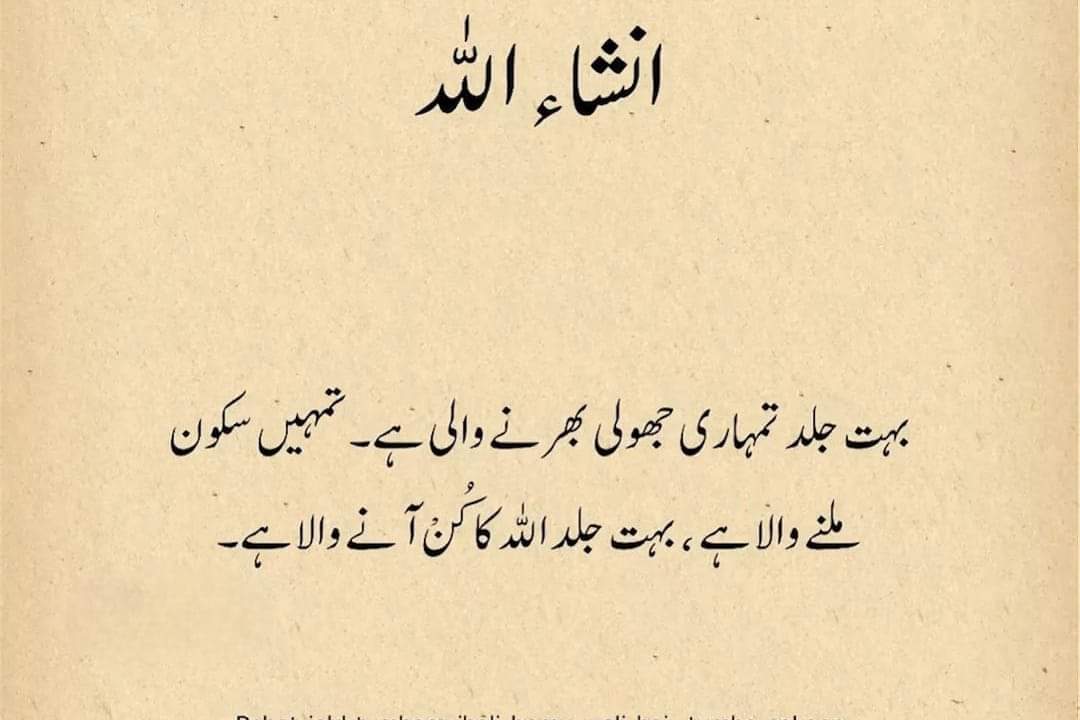 انشاء اللہ
بہت جلد تمہاری جھولی بھرنے والی ہے۔ تمہیں سکون
ملنے والا ہے، بہت جلد اللہ کا کُنْ آنے والا ہے۔